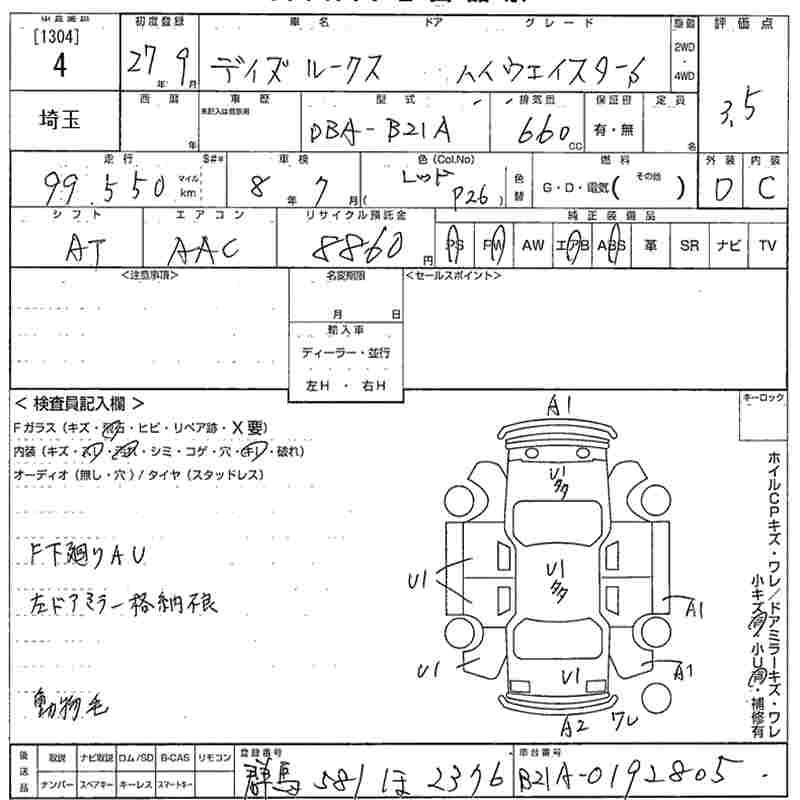 [1304]
4
初度登録 車名 ドア グレード 評価点
27年9月 デイズルークス ハイウェイスターS 2WD・4WD 3.5
埼玉 西暦 年 車歴 未記入は自家用 型式 排気量 保証書 定員
DBA-B21A 660 CC 有・無 名
走行 S#* 車検 色(Col.No) 燃料 外装 内装
99,550 マイル km 8年7月 レッド (P26) 色替 G・D・電気( その他 ) D C
シフト エアコン リサイクル預託金 純正装備品
AT AAC 8860円 PS PW AW エアB ABS 革 SR ナビ TV
<注意事項> 名変期限 <セールスポイント>
月 日
輸入車
ディーラー・並行
左H・右H
<検査員記入欄> キーロック
Fガラス(キズ・飛石・ヒビ・リペア跡・X要)
内装(キズ・スリ・汚れ・シミ・コゲ・穴・キレ・破れ)
オーディオ(無し・穴)/タイヤ(スタッドレス)
F下廻りAU
左ドアミラー格納不良
動物毛
A1
U1 タタ
U1 タタ
U1
A1
U1
U1
A1
A2 ワレ
ホイルCPキズ・ワレ/ドアミラーキズ・ワレ
小キズ有/小U有・補修有
後送品 取説 ナビ取説 ロム/SD B-CAS リモコン
ナンバー スペアキー キーレス スマートキー
登録番号 車台番号
群馬 581 ほ 2376 B21A-0192805